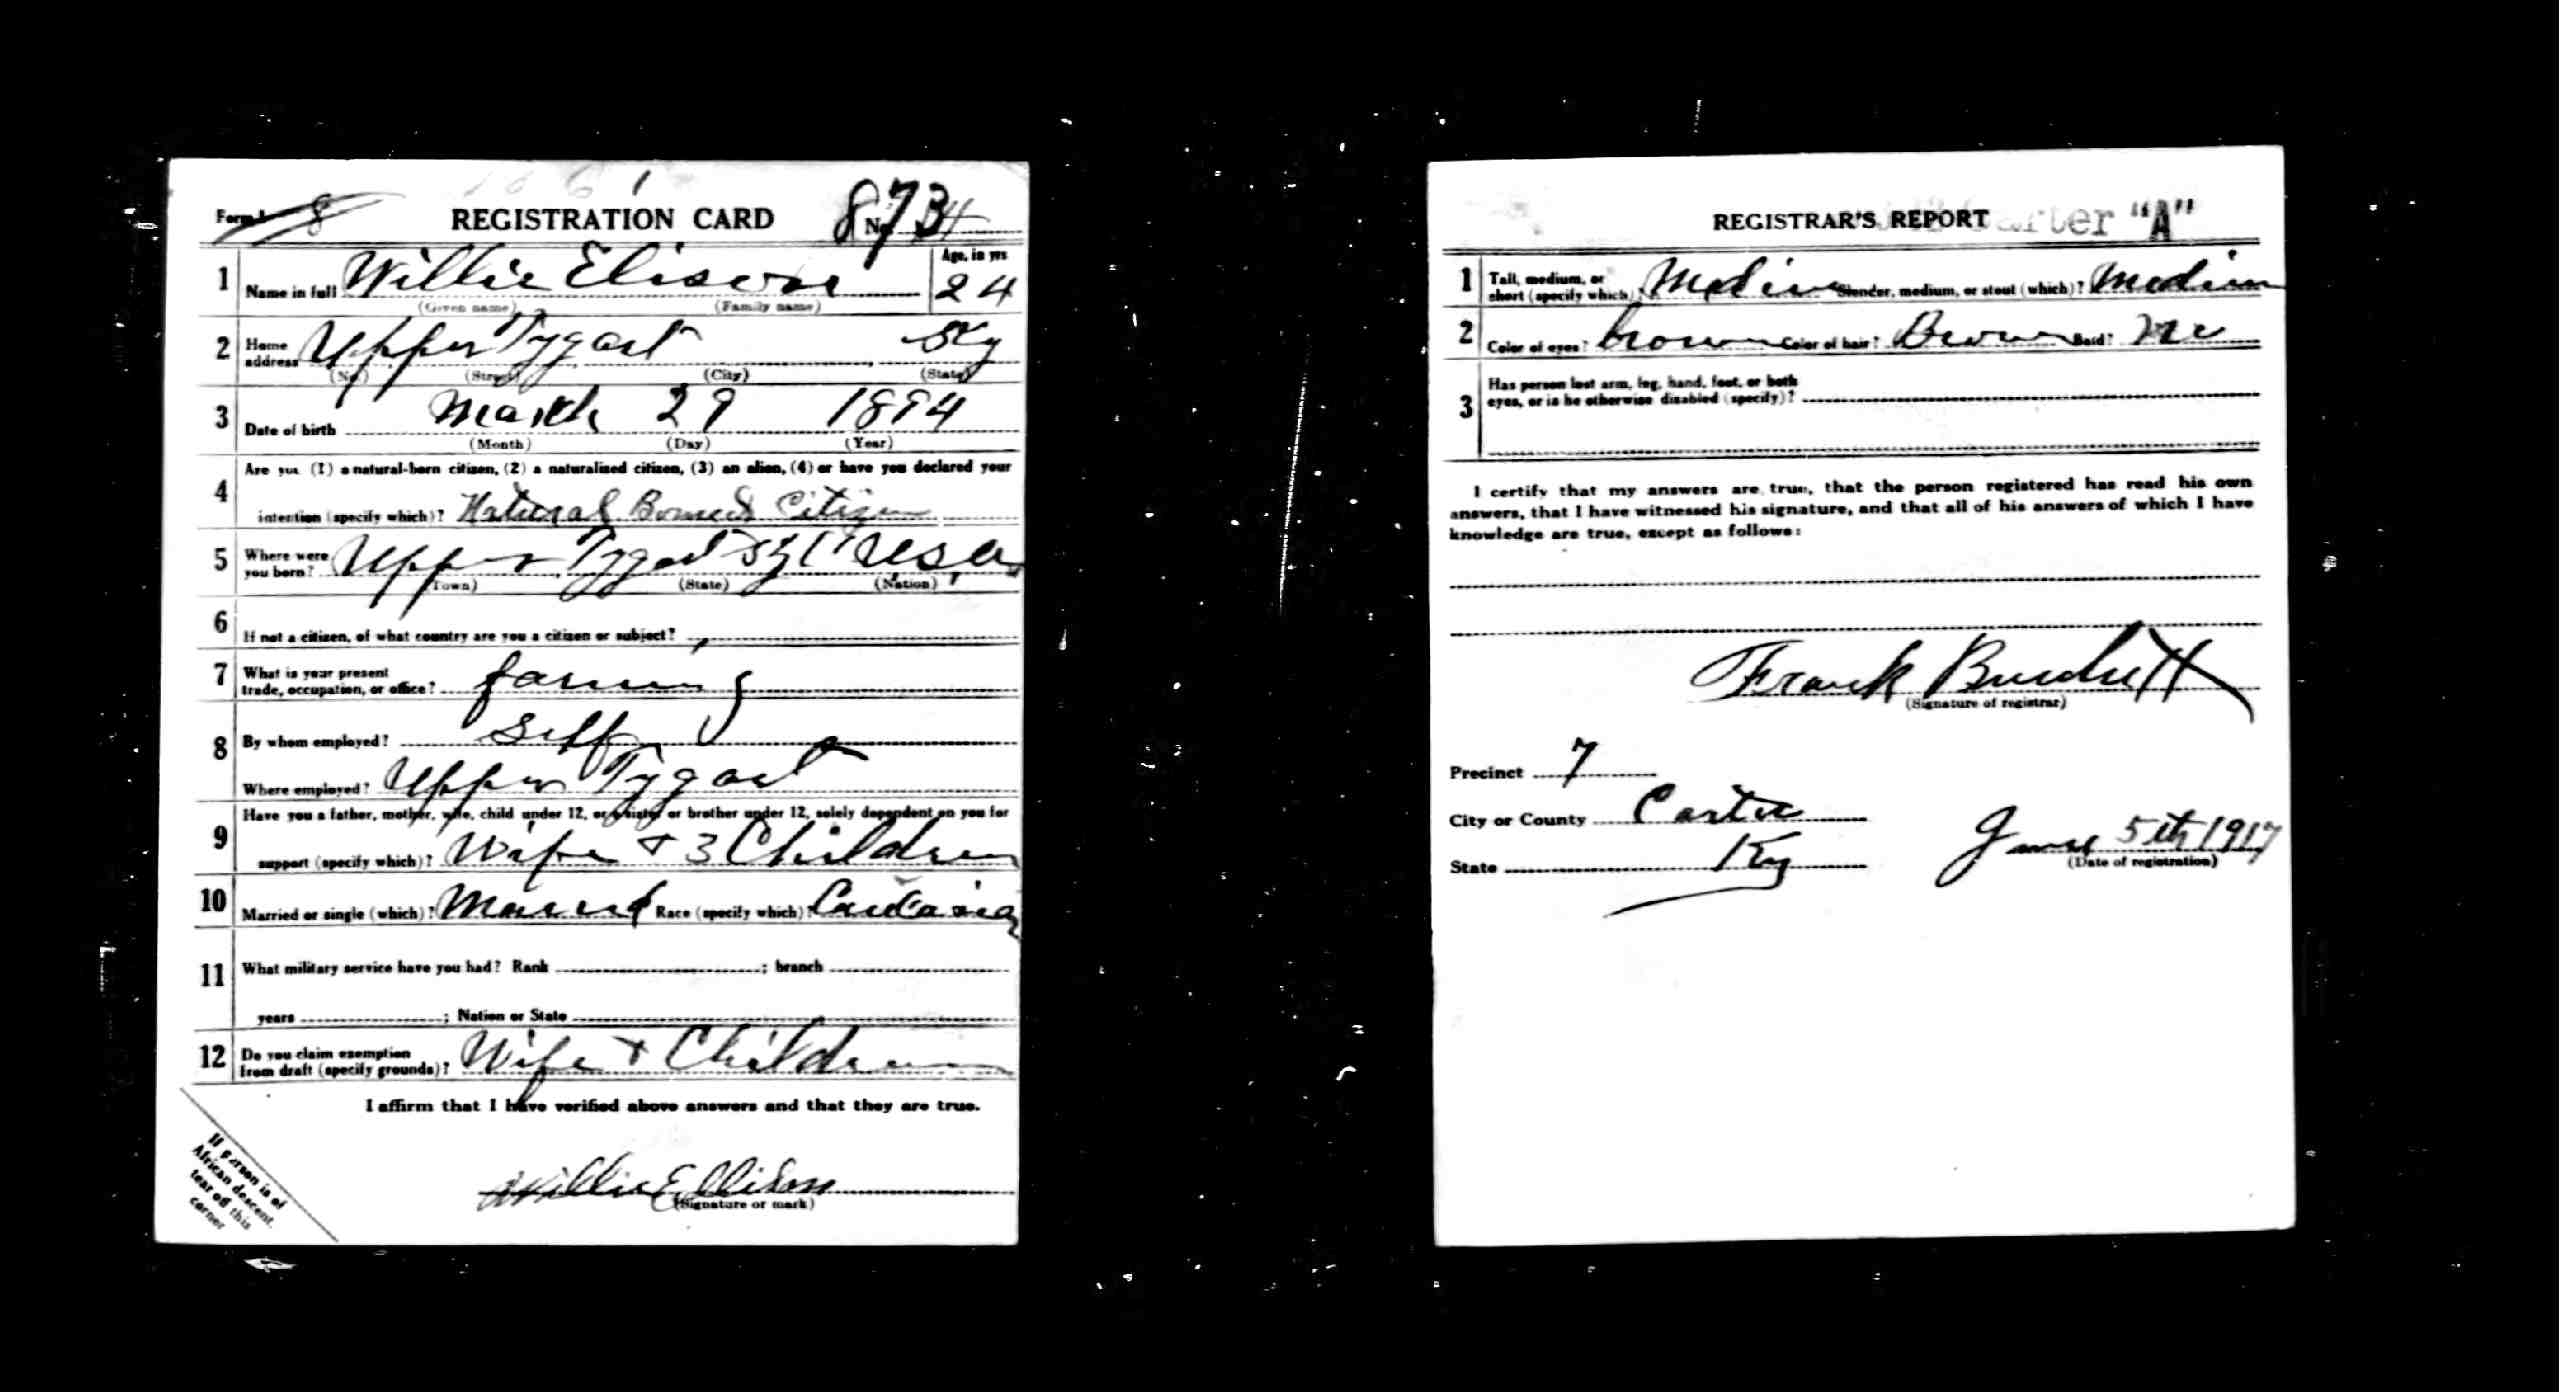 Form 1 8 REGISTRATION CARD No. 873
1 Name in full Willie Elison Age, in yrs 24
(Given name) (Family name)
2 Home address Upper Tygart Ky
(No.) (Street) (City) (State)
3 Date of birth March 29 1894
(Month) (Day) (Year)
4 Are you (1) a natural-born citizen, (2) a naturalized citizen, (3) an alien, (4) or have you declared your
intention (specify which)? Natural Borned Citizen
5 Where were you born? Upper Tygart Ky USA
(Town) (State) (Nation)
6 If not a citizen, of what country are you a citizen or subject?
7 What is your present
trade, occupation, or office? farming
8 By whom employed? Self
Where employed? Upper Tygart
9 Have you a father, mother, wife, child under 12, or a sister or brother under 12, solely dependent on you for
support (specify which)? Wife + 3 Children
10 Married or single (which)? Married Race (specify which)? Caucasian
11 What military service have you had? Rank ; branch
years ; Nation or State
12 Do you claim exemption
from draft (specify grounds)? Wife + Children
I affirm that I have verified above answers and that they are true.
Willie Ellison
(Signature or mark)
If person is of
African descent,
tear off this
corner
REGISTRAR'S REPORT Carter "A"
1 Tall, medium, or
short (specify which)? Medium Slender, medium, or stout (which)? Medium
2 Color of eyes? brown Color of hair? Brown Bald? No
3 Has person lost arm, leg, hand, foot, or both
eyes, or is he otherwise disabled (specify)?
I certify that my answers are true, that the person registered has read his own
answers, that I have witnessed his signature, and that all of his answers of which I have
knowledge are true, except as follows:
Frank Burchett
(Signature of registrar)
Precinct 7
City or County Carter
State Ky
June 5th 1917
(Date of registration)